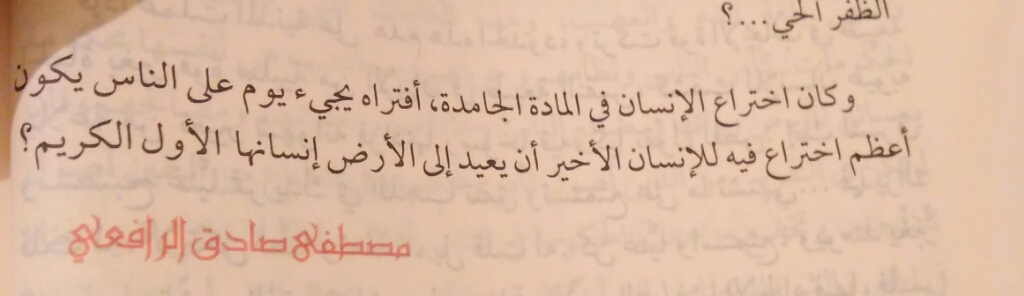 الظفر الحي...؟
وكان اختراع الإنسان في المادة الجامدة، أفتراه يجيء يوم على الناس يكون
أعظم اختراع فيه للإنسان الأخير أن يعيد إلى الأرض إنسانها الأول الكريم؟
مصطفى صادق الرافعي